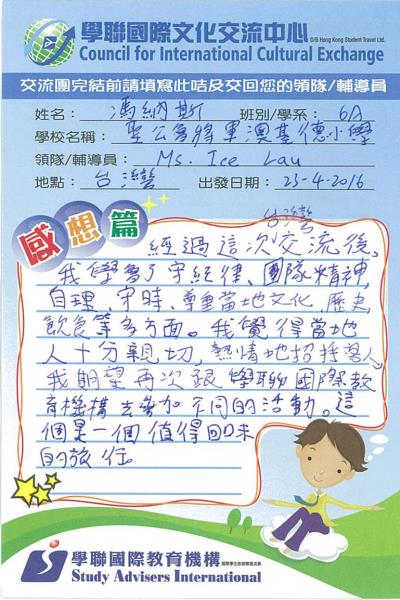 學聯國際文化交流中心
O/B Hong Kong Student Travel Ltd.
Council for International Cultural Exchange
交流團完結前請填寫此咭及交回您的領隊/輔導員
姓名：馮納斯 班別/學系：6A
學校名稱：聖公會將軍澳基德小學
領隊/輔導員：Ms. Ice Lau
地點：台灣 出發日期：23-4-2016
感想篇
台灣
經過這次交流後，
我學會了守紀律、團隊精神，
自理、守時、尊重當地文化，歷史
飲食等多方面。我覺得當地
人十分親切，熱情地招待客人，
我期望再次跟學聯國際教
育機構去參加不同的活動。這
個是一個值得回味
的旅行。
學聯國際教育機構
Study Advisers International